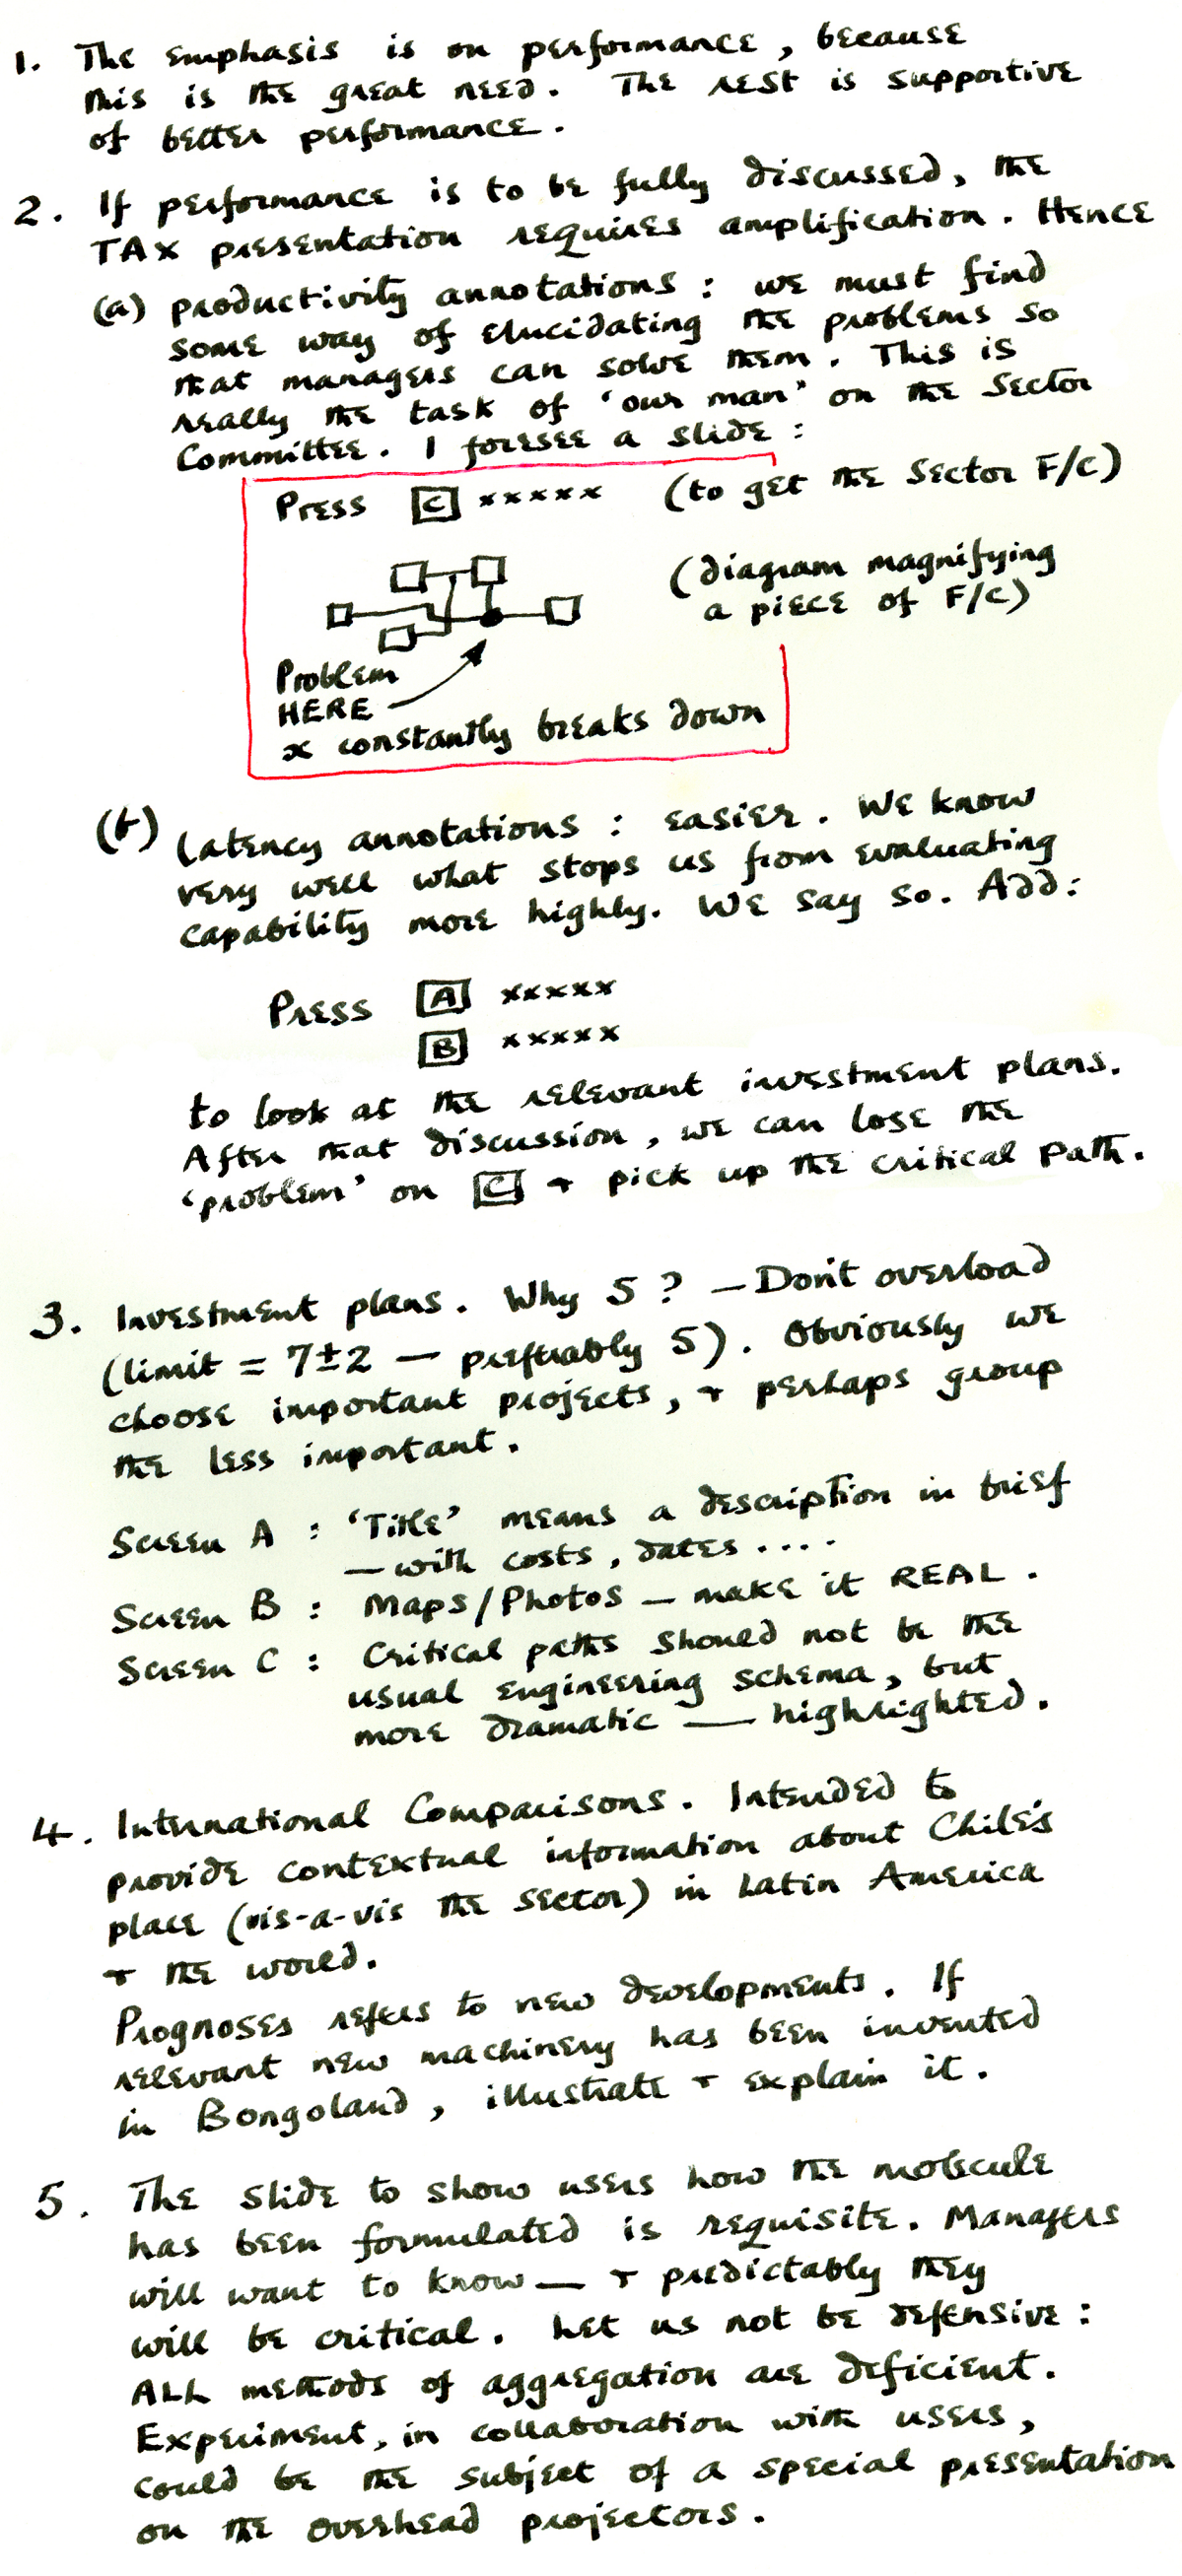 1. The emphasis is on performance, because
this is the great need. The rest is supportive
of better performance.
2. If performance is to be fully discussed, the
TAX presentation requires amplification. Hence
(a) productivity annotations : we must find
some way of elucidating the problems so
that managers can solve them. This is
really the task of 'our man' on the Sector
Committee. I foresee a slide :
Press C xxxxx (to get the Sector F/C)
(diagram magnifying
a piece of F/C)
Problem
HERE
x constantly breaks down
(b) latency annotations : easier. We know
very well what stops us from evaluating
capability more highly. We say so. Add :
Press A xxxxx
B xxxxx
to look at the relevant investment plans.
After that discussion, we can lose the
'problem' on C + pick up the critical path.
3. Investment plans. Why 5 ? — Don't overload
(limit = 7±2 — preferably 5). Obviously we
choose important projects, + perhaps group
the less important.
Screen A : 'Title' means a description in brief
— with costs, dates ....
Screen B : Maps/Photos — make it REAL.
Screen C : Critical paths should not be the
usual engineering schema, but
more dramatic — highlighted.
4. International Comparisons. Intended to
provide contextual information about Chile's
place (vis-a-vis the sector) in Latin America
+ the world.
Prognoses refers to new developments. If
relevant new machinery has been invented
in Bongoland, illustrate + explain it.
5. The slide to show users how the molecule
has been formulated is requisite. Managers
will want to know — + predictably they
will be critical. Let us not be defensive :
ALL methods of aggregation are deficient.
Experiment, in collaboration with users,
could be the subject of a special presentation
on the overhead projectors.